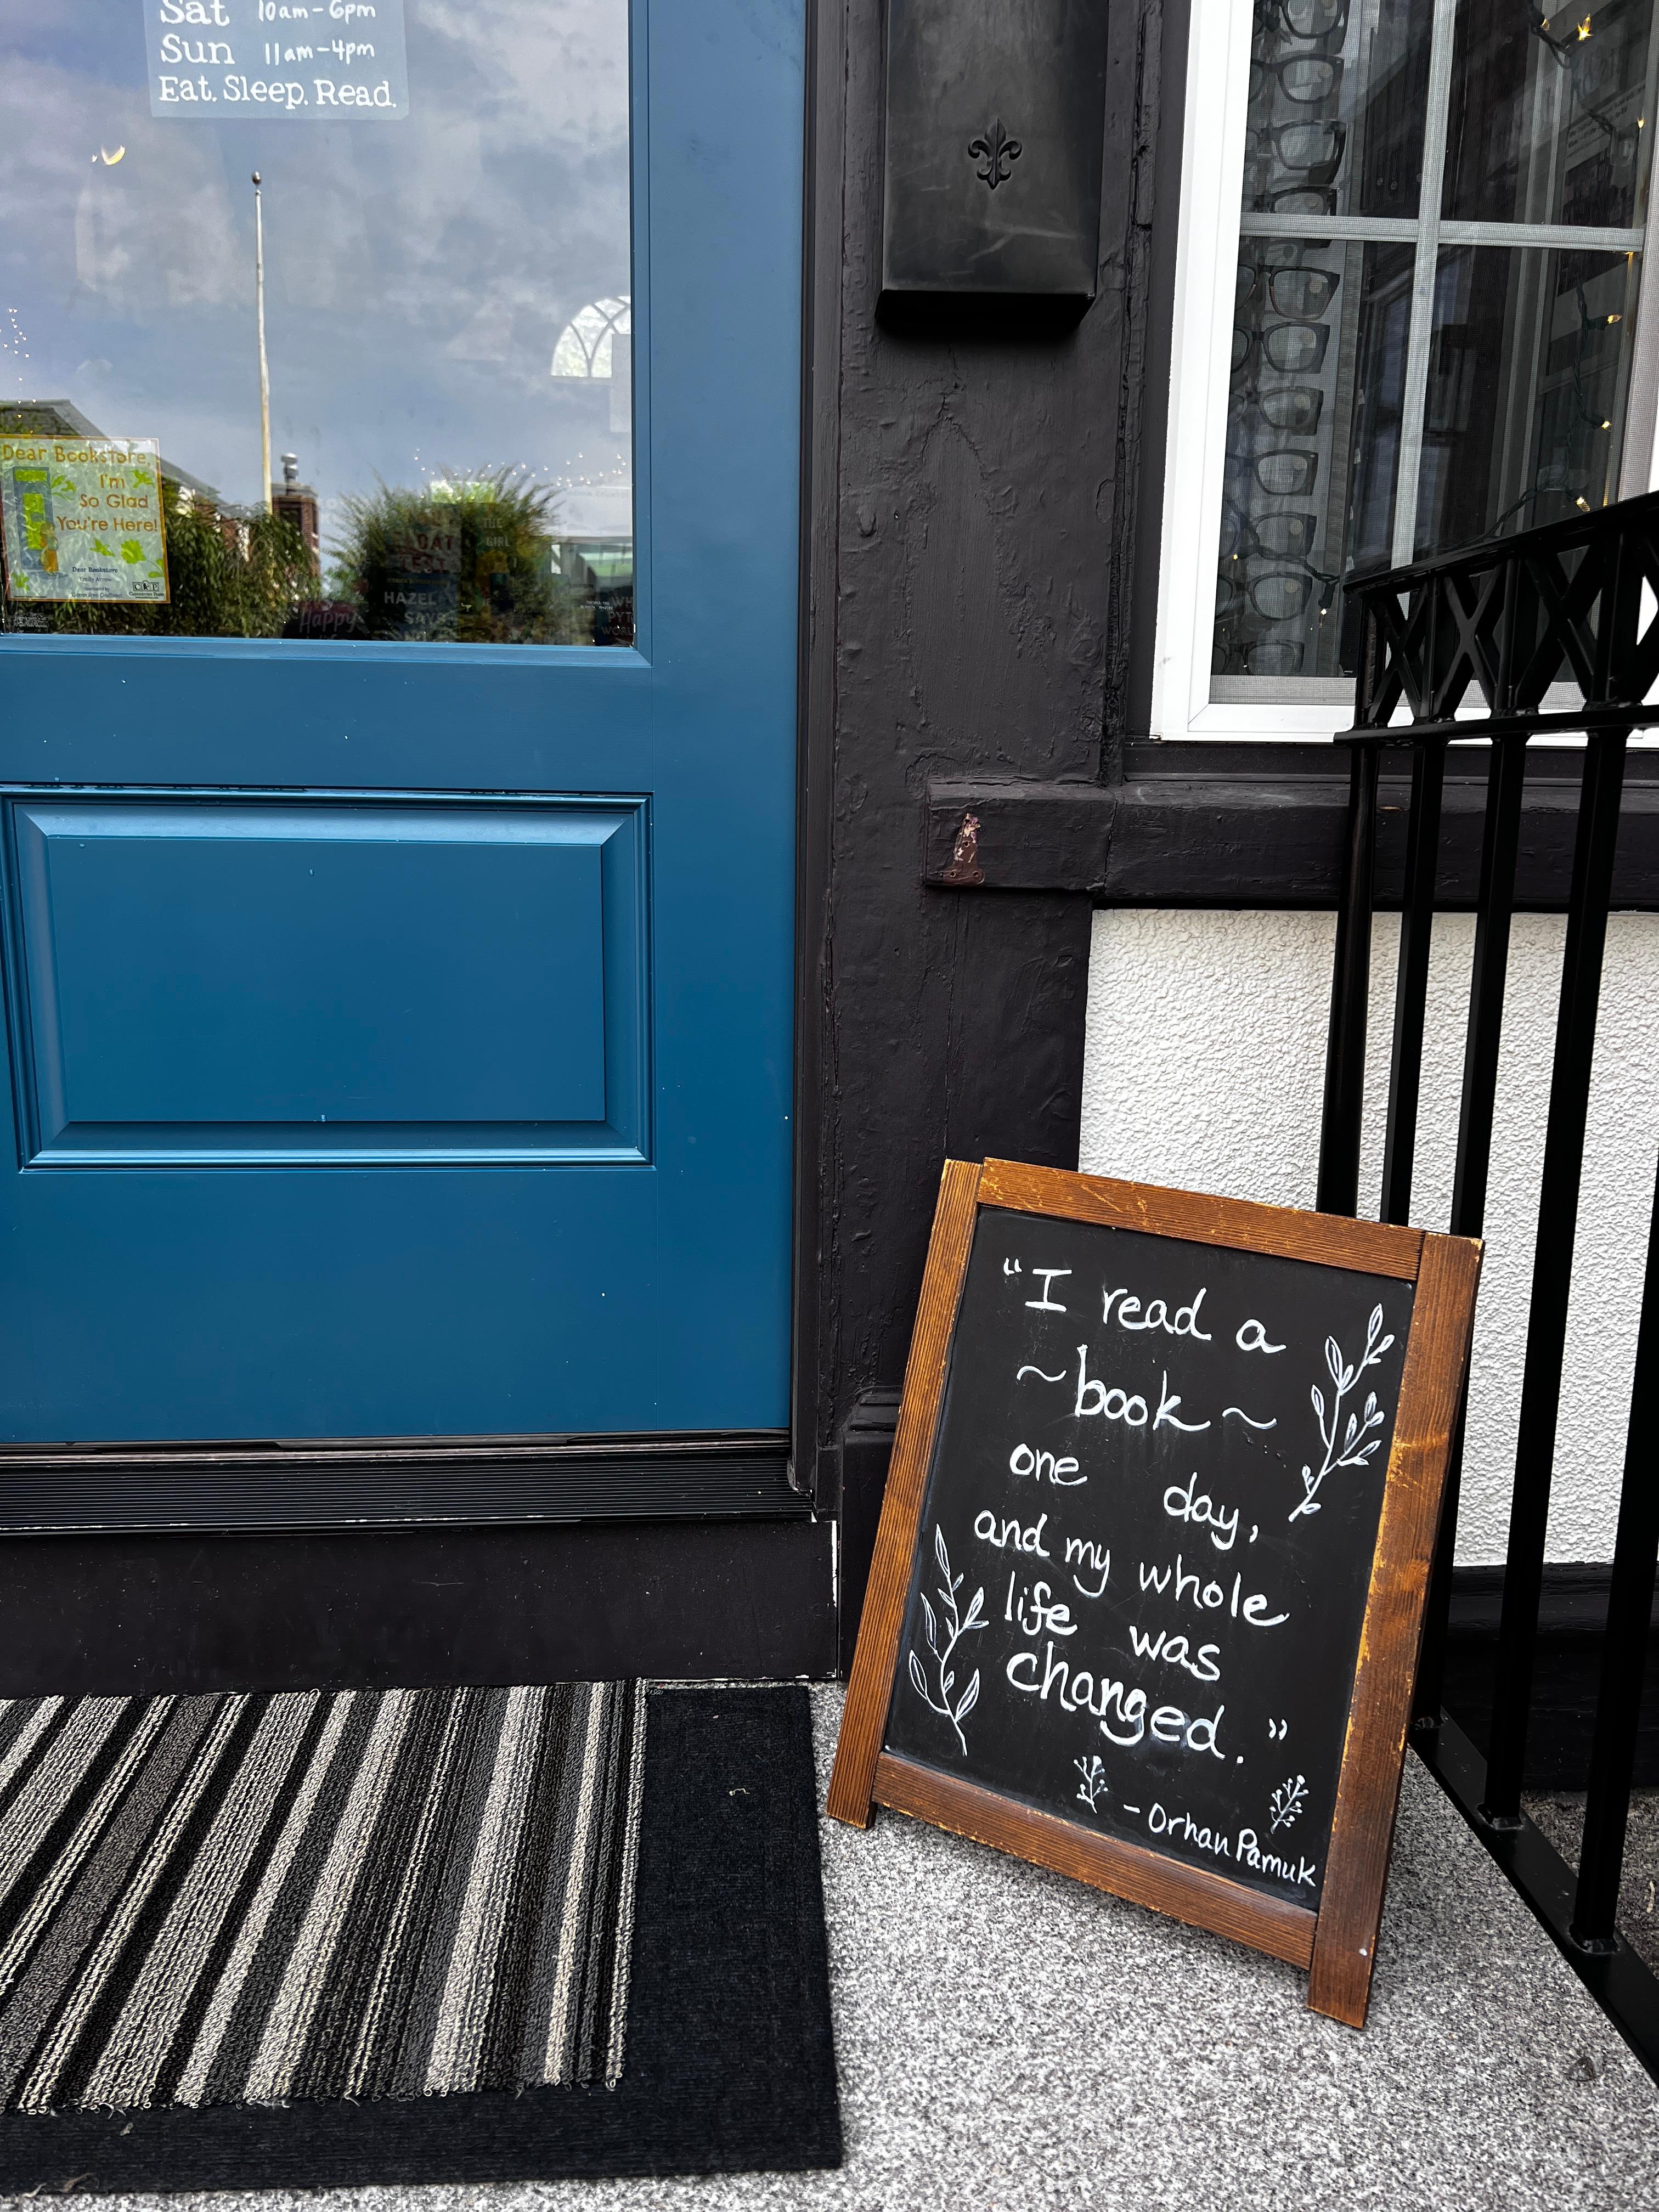 Sat 10am-6pm
Sun 11am-4pm
Eat. Sleep. Read.
Dear Bookstore,
I'm
So Glad
You're Here!
Dear Bookstore
Emily Arrow
THE
GIRL
HAZEL
SAYS
Happy
"I read a
~book~
one day,
and my whole
life was
changed."
-Orhan Pamuk